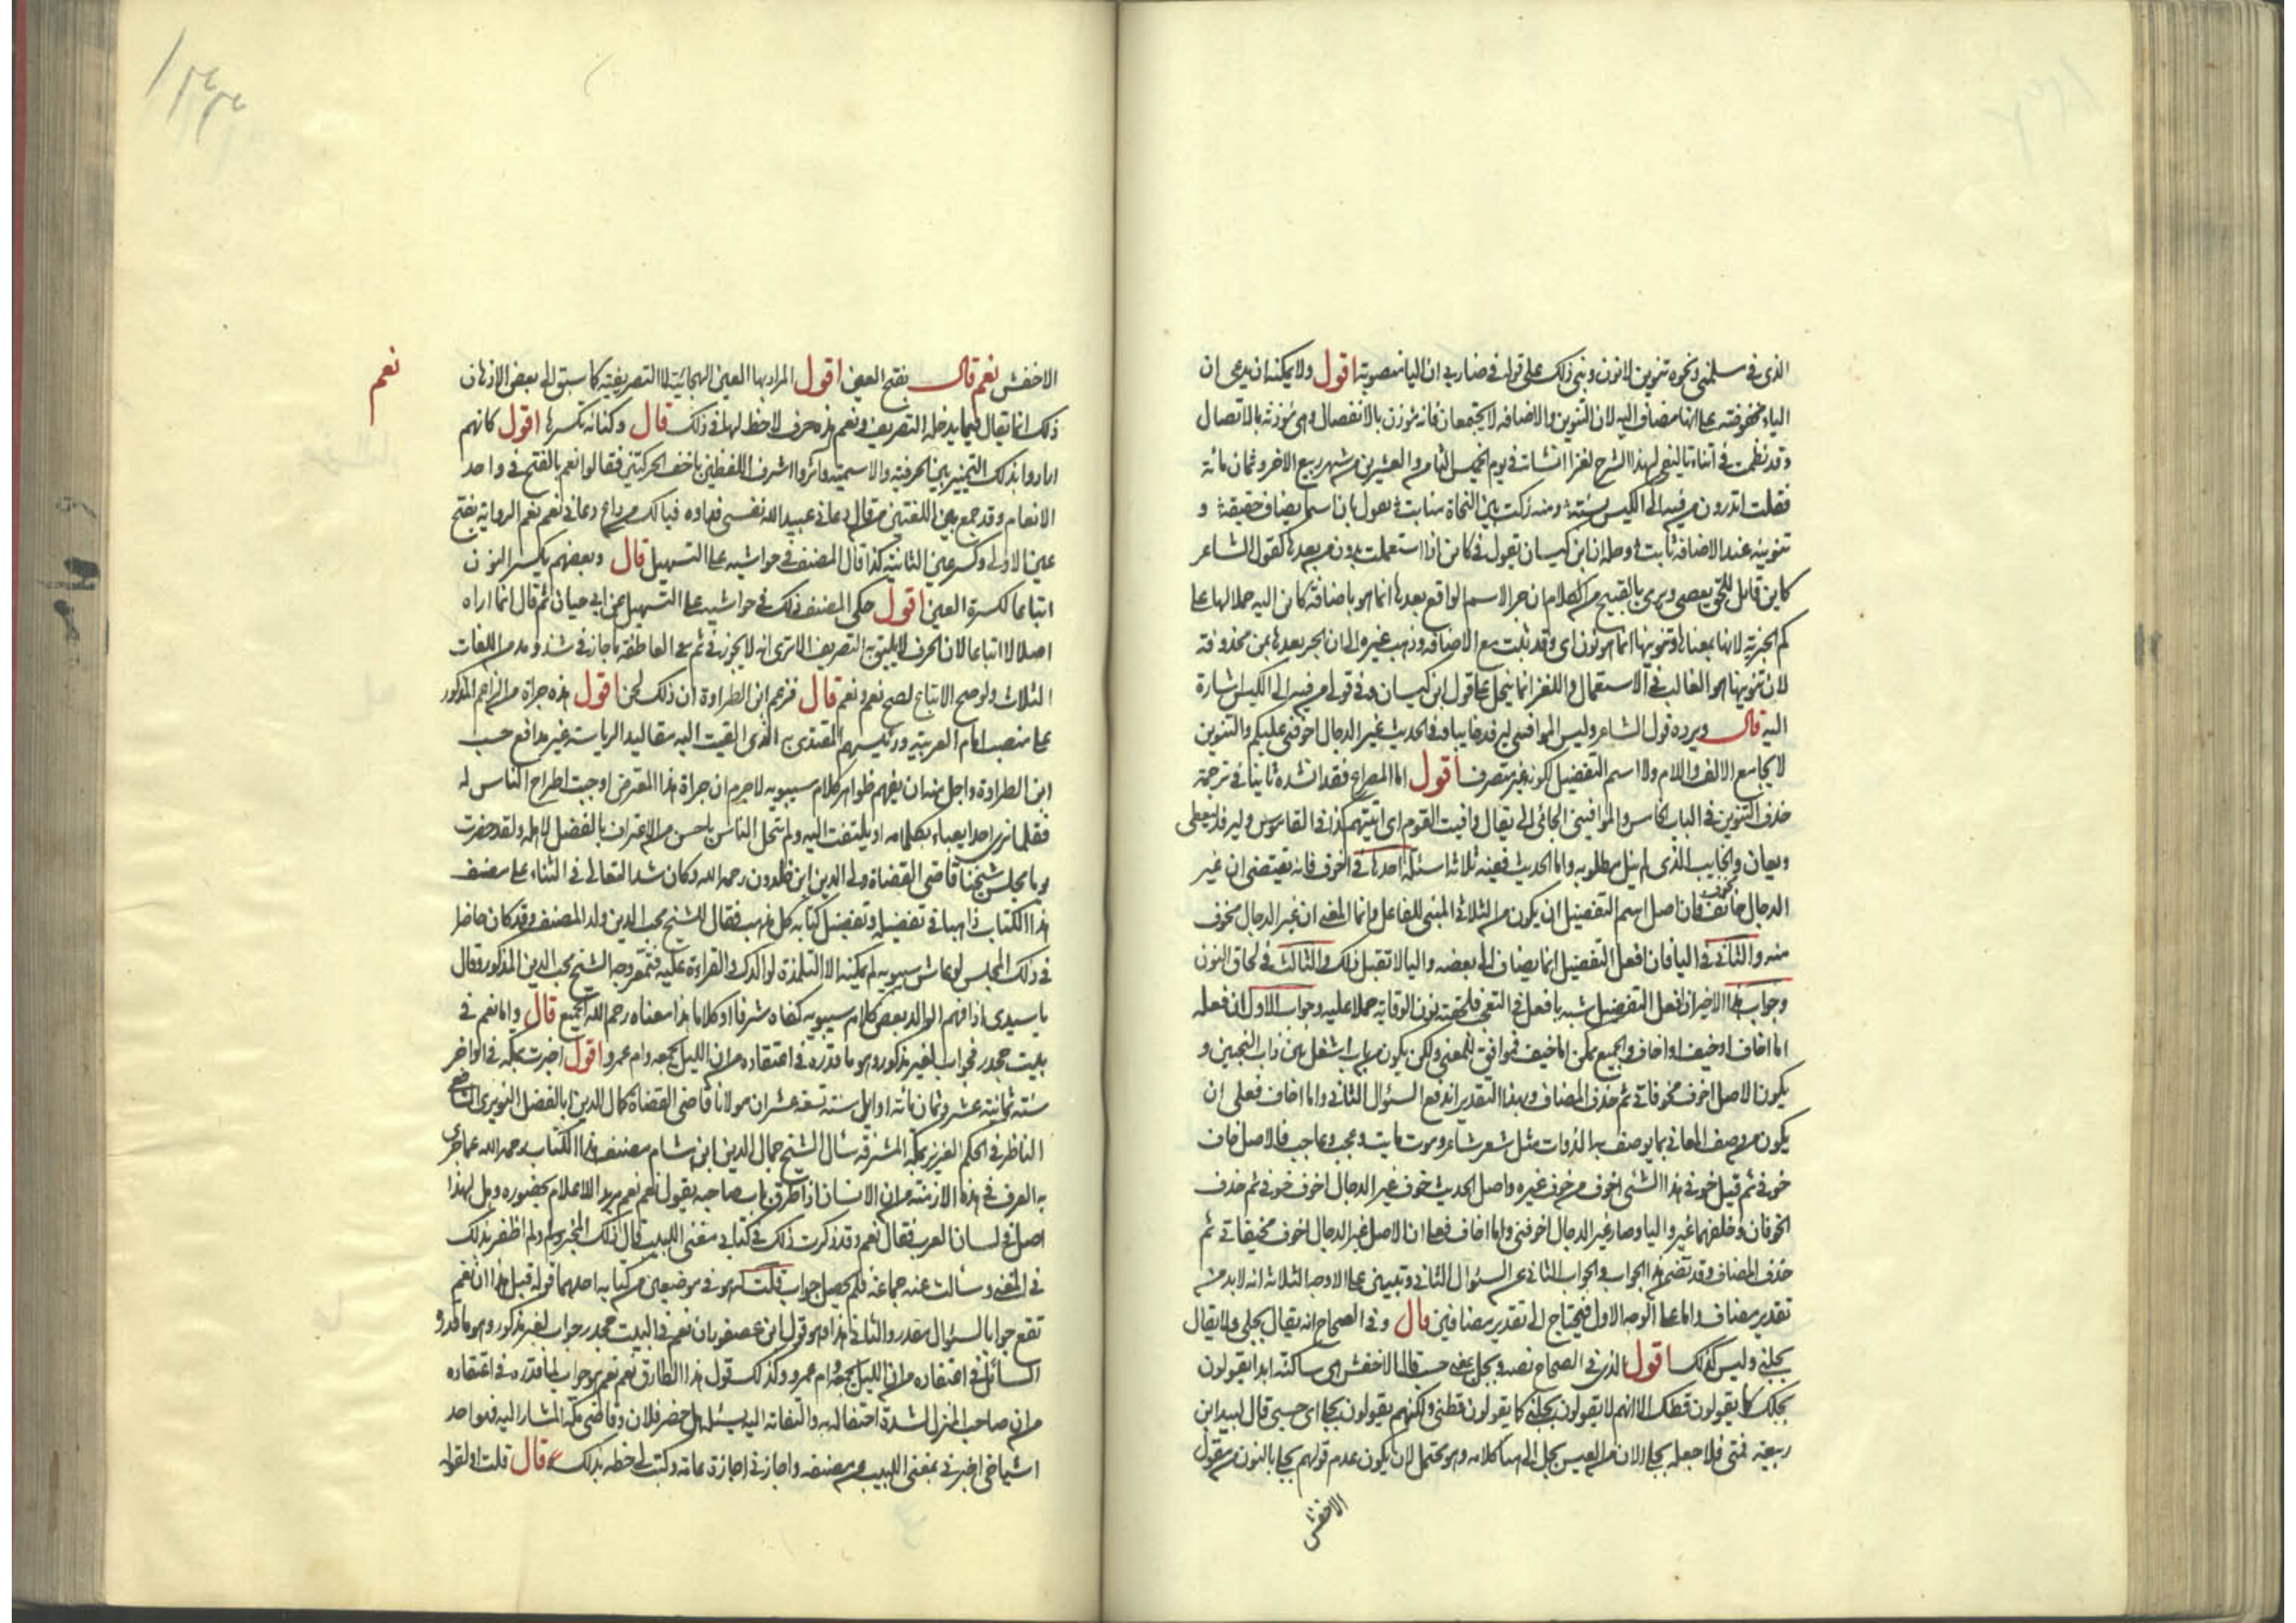 الذى فى سلمنى ونحوه تنوين لا نون وبنى ذلك على قوله فى ضاربى ان اليا منصوبة اقول ولا يمكنه ان يدعى ان
الياء مخفوضة على انها مضاف اليه لان التنوين والاضافه لا يجتمعان فانه مؤذن بالانفصال وهى مؤذنة بالاتصال
وقد نظمت فى أثناء تاليفى لهذا الشرح لغزا انشات فى يوم الخميس الثامن والعشرين من شهر ربيع الاخر وثمان مائة
فقلت اتدرون من فيه الى الكيس بنيته ومنه زكت بين النحاة منابت يقول بان اسما يضاف حقيقة و
تنوينه عند الاضافة ثابت وحله ان ابن كيسان يقول فى كاين اذا استعملت بدون من بعدها كقول الشاعر
كاين قائل للحق يعصى ويرى بالقبيح من الكلام ان جر الاسم الواقع بعدها انما هو باضافة كاين اليه حملا لها على
كم الخبرية لانها بمعناها وتنوينها انما هو نون اى وقد ثبتت مع الاضافه وذهب غيره الى ان الجر بعدها بمن محذوفة
لان تنوينها هو الغالب فى الاستعمال واللغز انما ينحل على قول ابن كيسان وفى قولى من فيه الى الكيس اشارة
اليه قال ويرده قول الشاعر وليس الموافينى ليرفد خايبا وفى الحديث غير الدجال اخوفنى عليكم والتنوين
لا يجامع الالف واللام ولا اسم التفضيل لكونه غير متصرف اقول اما المصراع فقد انشده ثانيا فى ترجمة
حذف التنوين فى الباب الخامس والموافينى الجائى الى يقال وافيت القوم اى اتيتهم كذا فى القاموس وليرفد ليعطى
ويعان والخايب الذى لم ينل مطلوبه واما الحديث ففيه ثلاثة اسئلة احدها فى اخوف فانه يقتضى ان غير
الدجال خائف فان اصل اسم التفضيل ان يكون من الثلاثى المبنى للفاعل وانما المعنى ان غير الدجال مخوف
منه والثانى فى اليا فان افعل التفضيل انما يضاف الى بعضه واليا لا تقبل ذلك والثالث فى لحاق النون
وجواب هذا الاخير ان افعل التفضيل شبه بافعل فى التعجب فلحقته نون الوقاية حملا عليه وجواب الاول ان فعله
اما اخاف او خيف او خاف والجميع ممكن اما خيف فموافق للمعنى ولكن يكون من باب اشغل من ذات النحيين و
يكون الاصل اخوف مخوفاتى ثم حذف المضاف وبهذا التقدير اندفع السؤال الثانى واما اخاف فعلى ان
يكون من وصف المعانى بما يوصف به الذوات مثل شعر شاعر وموت مايت وعجب عاجب فالاصل خاف
خوفى ثم قيل خوفى هذا الشئ اخوف من خوف غيره واصل الحديث خوف غير الدجال اخوف خوفى ثم حذف
الخوفان وخلفهما غير واليا وصار غير الدجال اخوفنى واما اخاف فعلى ان الاصل غير الدجال اخوف مخيفاتى ثم
حذف المضاف وقد تضمن هذا الجواب والجواب الثانى عن السؤال الثانى وتبين على الاوجه الثلاثة انه لابد من
تقدير مضاف واما على الوجه الاول فيحتاج الى تقدير مضافين قال وفى الصحاح انه يقال بجلى ولا يقال
بجلنى وليس كذلك اقول الذى فى الصحاح نصه وبجل بمعنى حسب قال الاخفش هى ساكنة ابدا يقولون
بجلك كما يقولون قطك الا انهم لا يقولون بجلنى كما يقولون قطنى ولكنهم يقولون بجلى اى حسبى قال لبيد ابن
ربيعة فمتى فلا احفله بجلى الان من العيش بجل الى هنا كلامه وهو محتمل لان يكون عدم قولهم بجلى بالنون من مقول
الاخفش
الاخفش نعم قال بفتح العين اقول المراد بها العين الهجائية لا التصريفية كما سبق الى بعض الاذهان
ذلك انما يقال فيما يدخله التصريف ونعم هذه حرف لا حظ لها فى ذلك قال وكنانه تكسرها اقول كانهم
ارادوا بذلك التمييز بين الحرفية والاسمية واثروا اشرف اللفظين باخف الحركتين فقالوا نعم بالفتح فى واحد
الانعام وقد جمع بين اللغتين من قال دعانى عبيد الله نفسى فداوه فيالك من داع دعانى نعم نعم الرواية بفتح
عين الاولى وكسر عين الثانية كذا قال المصنف فى حواشيه على التسهيل قال وبعضهم يكسر النون
اتباعا لكسرة العين اقول حكى المصنف ذلك فى حواشيه على التسهيل عن ابى حيان ثم قال انما اراه
اصلا لا اتباعا لان الحرف لا يليق به التصريف الا ترى انه لا يجوز فى ثم هى العاطفة ما جاز فى شد ومد من اللغات
الثلاث ولو صح الاتباع لصح نعم ونعم قال فزعم ابن الطراوة ان ذلك لحن اقول هذه جراة من الزاعم المذكور
على منصب امام العربية ورئيسهم المقتدى به الذى القيت اليه مقاليد الرياسة غير مدافع حسب
ابن الطراوة واجل منه ان يفهم ظواهر كلام سيبويه لا جرم ان جراة هذا المعترض اوجبت اطراح الناس له
فقلما نرى احدا يعباء بكلامه او يلتفت اليه ولم تنحل الناس باحسن من الاعتراف بالفضل لاهله ولقد حضرت
يوما مجلس شيخنا قاضى القضاة ولى الدين ابن خلدون رحمه الله وكان شد التغالى فى الثناء على مصنف
هذا الكتاب ذاهبا فى تفضيله وتفضيل كتابه كل مذهب فقال للشيخ محب الدين ولد المصنف وقد كان حاضرا
فى ذلك المجلس لو عاش سيبويه لم يمكنه الا التلمذة لوالدك والقراءة عليه فتمعر وجه الشيخ محب الدين المذكور وقال
يا سيدى اذا فهم الوالد بعض كلام سيبويه كفاه شرفا او كلاما هذا معناه رحم الله الجميع قال واما نعم فى
بيت جحدر فجواب لغير مذكور وهو ما قدره فى اعتقاده من ان الليل يجمعه وام عمرو اقول اخبرت بمكة فى اواخر
سنة ثمانية عشر وثمان مائة او اوايل سنة تسعة عشر ان مولانا قاضى القضاة كمال الدين ابا الفضل النويرى الشافعى
الناظر فى الحكم العزيز بمكة المشرفة سال الشيخ جمال الدين ابن هشام مصنف هذا الكتاب رحمه الله عما جرى
به العرف فى هذه الازمنة من ان الانسان اذا طرق باب صاحبه يقول نعم نعم مريدا للاعلام بحضوره وهل لهذا
اصل فى لسان العرب فقال نعم وقد ذكرت ذلك فى كتابى مغنى اللبيب قال ذلك المخبر ولم اظفر بذلك
فى المغنى وسألت عنه جماعة فلم يحصل جواب قلت له هو فى موضعين من كتابه احدهما قوله قبل هذا ان نعم
تقع جوابا لسؤال مقدر والثانى هذا وهو قول ابن عصفور ان نعم فى البيت جحدر جواب لغير مذكور وهو ما قدره
السائل فى اعتقاده من ان الليل يجمعه وام عمرو وكذلك قول هذا الطارق نعم نعم هو جواب لما قدره فى اعتقاده
من ان صاحب المنزل لشدة احتفاله به والتفاته اليه يسئل هل حضر فلان وقاضى مكة المشار اليه هو احد
اشياخى اخبرنى بمغنى اللبيب عن مصنفه واجازنى اجازة عامة وكتب لى خطه بذلك قال قلت اولقوله
نعم